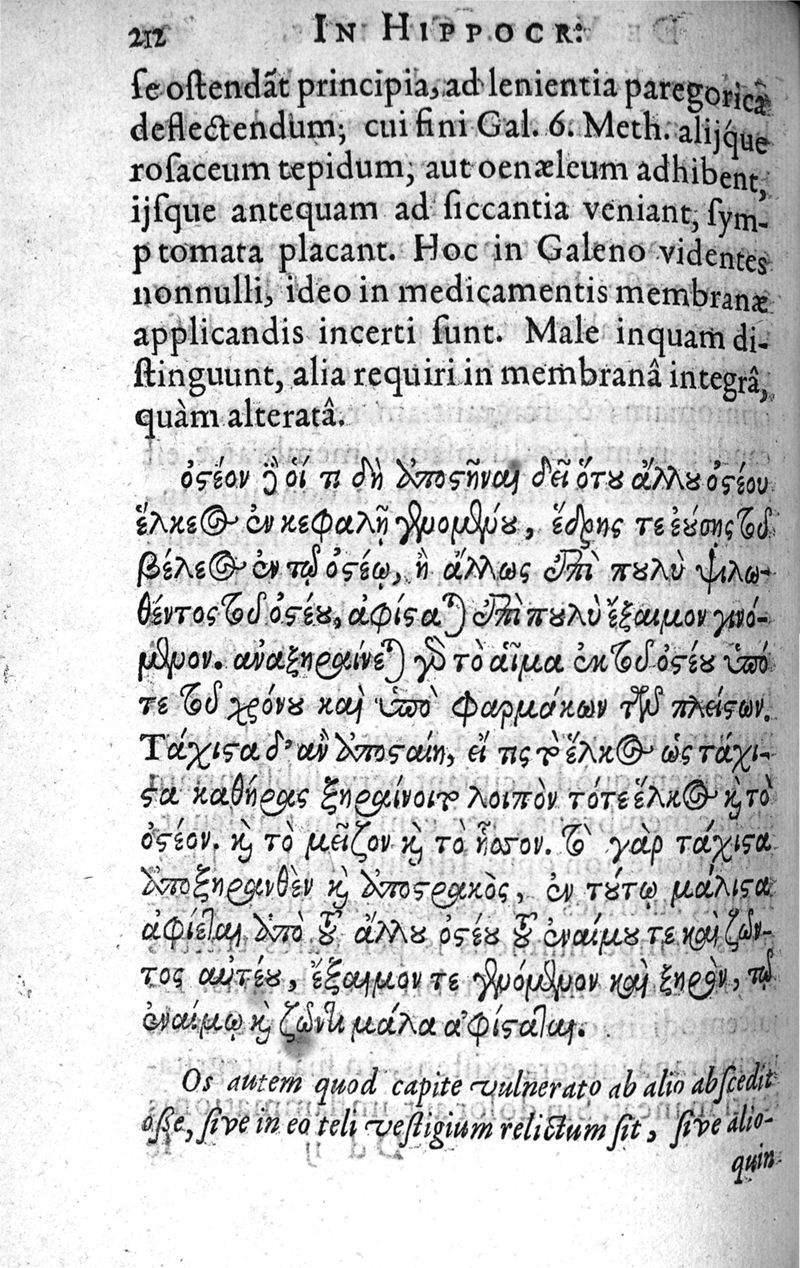 212 IN HIPPOCR:
ſe oſtendãt principia, ad lenientia paregorica
deflectendum; cui fini Gal. 6. Meth. alijque
roſaceum tepidum, aut oenæleum adhibent,
ijſque antequam ad ſiccantia veniant, ſym-
ptomata placant. Hoc in Galeno videntes
nonnulli, ideo in medicamentis membranæ
applicandis incerti ſunt. Male inquam di-
ſtinguunt, alia requiri in membranâ integrâ,
quàm alteratâ.
ὀϛέον ὅ τι δὴ ἀποϛῆναι δεῖ ἄλλȣ ὀϛέου
ἕλκεος ἐν κεφαλῇ γενομένȣ, ἕδρης τε ἐȣ́σης τοῦ
βέλεος ἐν τῷ ὀϛέῳ, ἢ ἄλλως ἐπὶ πȣλὺ ψιλω-
θέντος τοῦ ὀϛέȣ, ἀφίϛαται ἐπὶ πȣλὺ ἔξαιμον γινό-
μενον. ἀναξηραίνεται γὰρ τὸ αἷμα ἐκ τοῦ ὀϛέȣ ὑπό
τε τοῦ χρόνȣ καὶ ὑπὸ φαρμάκων τῶν πλείϛων.
Τάχιϛα δ' ἂν ἀποϛαίη, εἴ τις τὸ ἕλκος ὡς τάχι-
ϛα καθήρας ξηραίνοι τὸ λοιπὸν τό τε ἕλκος καὶ τὸ
ὀϛέον. καὶ τὸ μεῖζον καὶ τὸ ἧσσον. τὸ γὰρ τάχιϛα
ἀποξηρανθὲν καὶ ἀποϛρακὸς, ἐν τȣ́τῳ μάλιϛα
ἀφίεται ἀπὸ τοῦ ἄλλȣ ὀϛέȣ τοῦ ἐναίμȣ τε καὶ ζῶν-
τος αὐτέȣ, ἔξαιμον τε γενόμενον καὶ ξηρὸν, τῷ
ἐναίμῳ καὶ ζῶντι μάλα ἀφίϛαται.
Os autem quod capite vulnerato ab alio abſcedit
oſſe, ſive in eo teli veſtigium relictum ſit, ſive alio-
quin